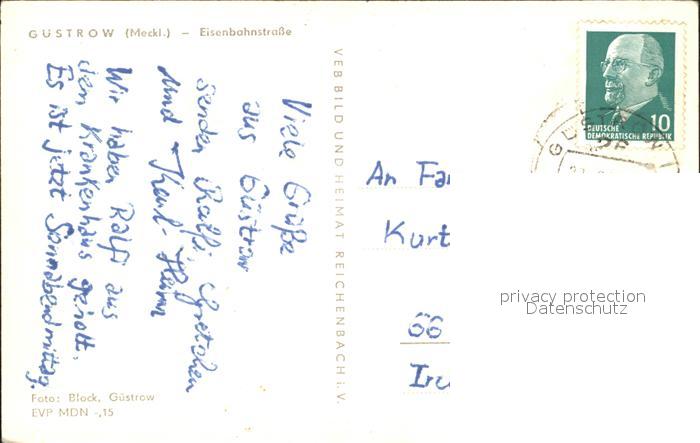 GÜSTROW (Meckl.) – Eisenbahnstraße
Viele Grüße
aus Güstrow
senden Ralfi, Gretchen
und Karl-Heinz
Wir haben Ralfi aus
dem Krankenhaus geholt.
Es ist jetzt Sonnabendmittag.
Foto: Block, Güstrow
EVP MDN -,15
VEB BILD UND HEIMAT REICHENBACH i. V.
10
DEUTSCHE
DEMOKRATISCHE REPUBLIK
GÜSTROW
An Fa
Kurt
66
privacy protection
Datenschutz